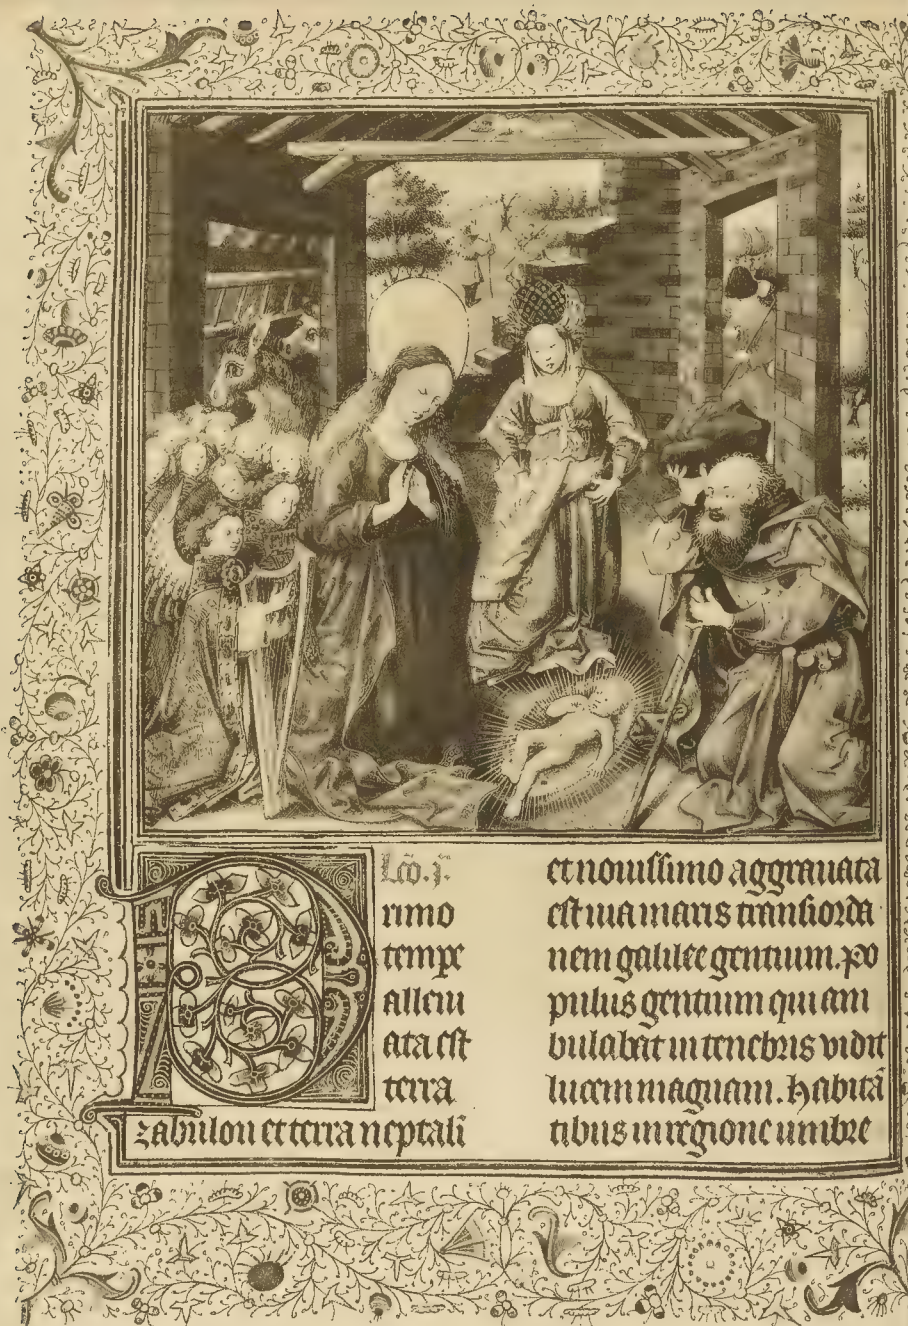 Lcō. j.
rimo
tempe
alleui
ata est
terra
zabulon et terra neptali
et nouissimo aggrauata
est uia maris transiorda
nem galilee gentium. po
pulus gentium qui am
bulabat in tenebris vidit
lucem magnam. habitā
tibus in regione umbre